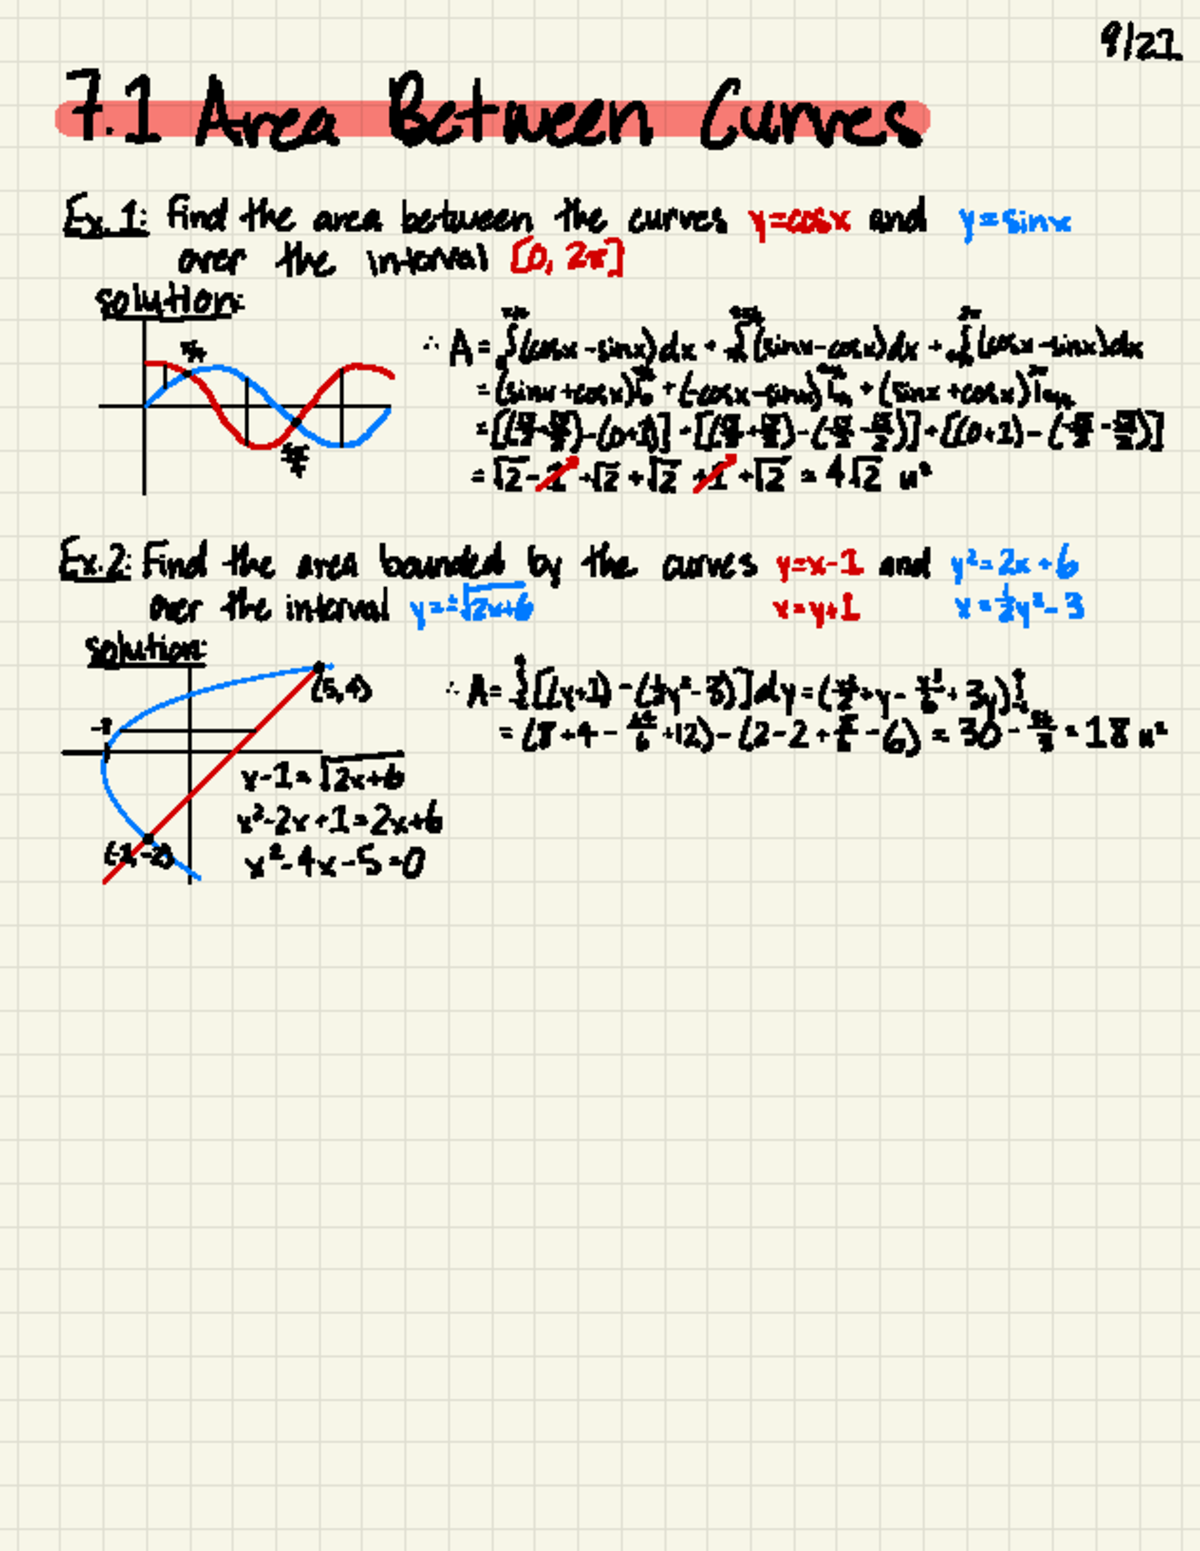 9/21
7.1 Area Between Curves
Ex. 1: Find the area between the curves y=cosx and y=sinx
over the interval [0, 2π]
solution:
π/4
5π/4
∴ A = ∫(cosx-sinx)dx + ∫(sinx-cosx)dx + ∫(cosx-sinx)dx
= (sinx+cosx)| + (-cosx-sinx)| + (sinx+cosx)|
= √2 - 1 + √2 + √2 + 1 + √2 = 4√2 u²
Ex. 2: Find the area bounded by the curves y=x-1 and y²=2x+6
over the interval y=±√2x+6 x=y+1 x=½y²-3
solution:
(5,4)
-3
(-1,-2)
x-1=√2x+6
x²-2x+1=2x+6
x²-4x-5=0
∴ A = ∫[(y+1)-(½y²-3)]dy = (y²/2+y-y³/6+3y)|
= (8+4-64/6+12)-(2-2+8/6-6) = 30-36/3 = 18 u²